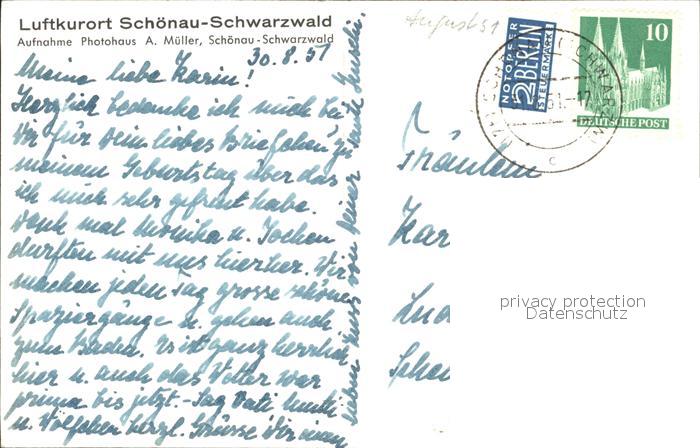 Luftkurort Schönau-Schwarzwald
Aufnahme Photohaus A. Müller, Schönau-Schwarzwald
August 51
30.8.51
Meine liebe Karin!
Herzlich bedanke ich mich bei
Dir für Dein liebes Briefchen zu
meinem Geburtstag über das
ich mich sehr gefreut habe.
Denk mal Monika u. Jochen
durften mit uns hierher. Wir
machen jeden Tag grosse schöne
Spaziergänge u. gehen auch
zum Baden. Es ist ganz herrlich
hier u. auch das Wetter war
prima bis jetzt. - Sag Vati Mutti
u. Wölfchen herzl. Grüsse Dir einen
von Deiner
NOTOPFER
2 BERLIN
STEUERMARKE
10
DEUTSCHE POST
c
Fräulein
Kar
privacy protection
Datenschutz